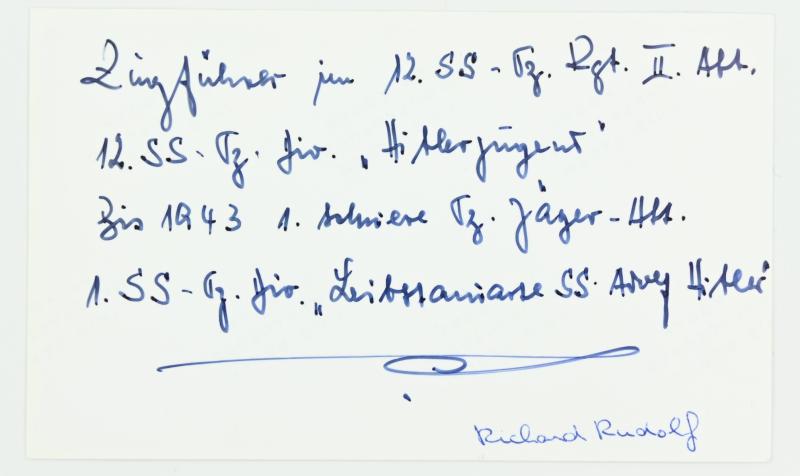 Zugführer im 12. SS-Pz. Rgt. II. Abt.
12. SS-Pz. Div. „Hitlerjugent"
Bis 1943 1. schwere Pz. Jäger-Abt.
1. SS-Pz. Div. „Leibstandarte SS. Adolf Hitler"
Richard Rudolf